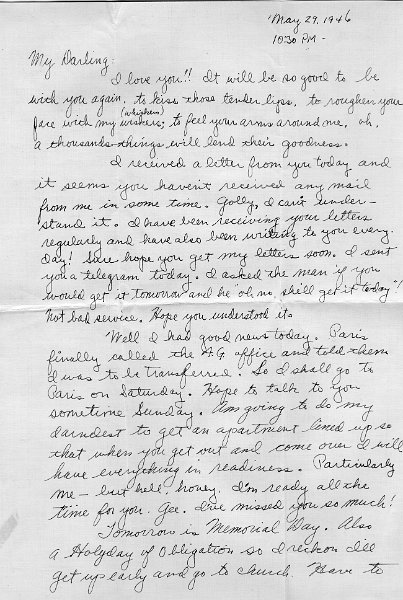 May 29, 1946
10:30 PM -
My Darling:
I love you!! It will be so good to be
with you again, to kiss those tender lips, to roughen your
(whiskers)
face with my wiskers; to feel your arms around me, oh,
a thousands things will lend their goodness.
I received a letter from you today and
it seems you haven't received any mail
from me in some time. Golly, I can't under-
stand it. I have been receiving your letters
regularly and have also been writing to you every
day! Sure hope you get my letters soon. I sent
you a telegram today. I asked the man if you
would get it tomorrow and he "oh no, she'll get it today"!
Not bad service. Hope you understood it.
Well I had good news today. Paris
finally called the A.G. office and told them
I was to be transferred. So I shall go to
Paris on Saturday. Hope to talk to you
sometime Sunday. Am going to do my
darndest to get an apartment lined up so
that when you get out and come over I will
have everything in readiness. Particularly
me - but hell, honey, I'm ready all the
time for you. Gee. I've missed you so much!
Tomorrow is Memorial Day. Also
a Holyday of Obligation so I reckon I'll
get up early and go to church. Have to